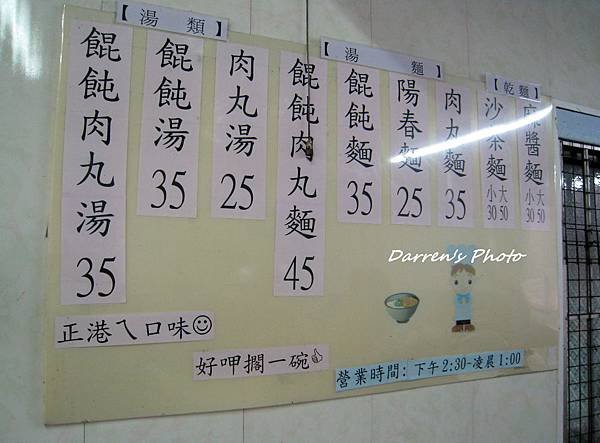 【湯類】
餛飩肉丸湯 35
餛飩湯 35
肉丸湯 25
【湯麵】
餛飩肉丸麵 45
餛飩麵 35
陽春麵 25
肉丸麵 35
【乾麵】
沙茶麵 小30 大50
麻醬麵 小30 大50
Darren's Photo
正港ㄟ口味
好呷擱一碗
營業時間: 下午2:30-凌晨1:00